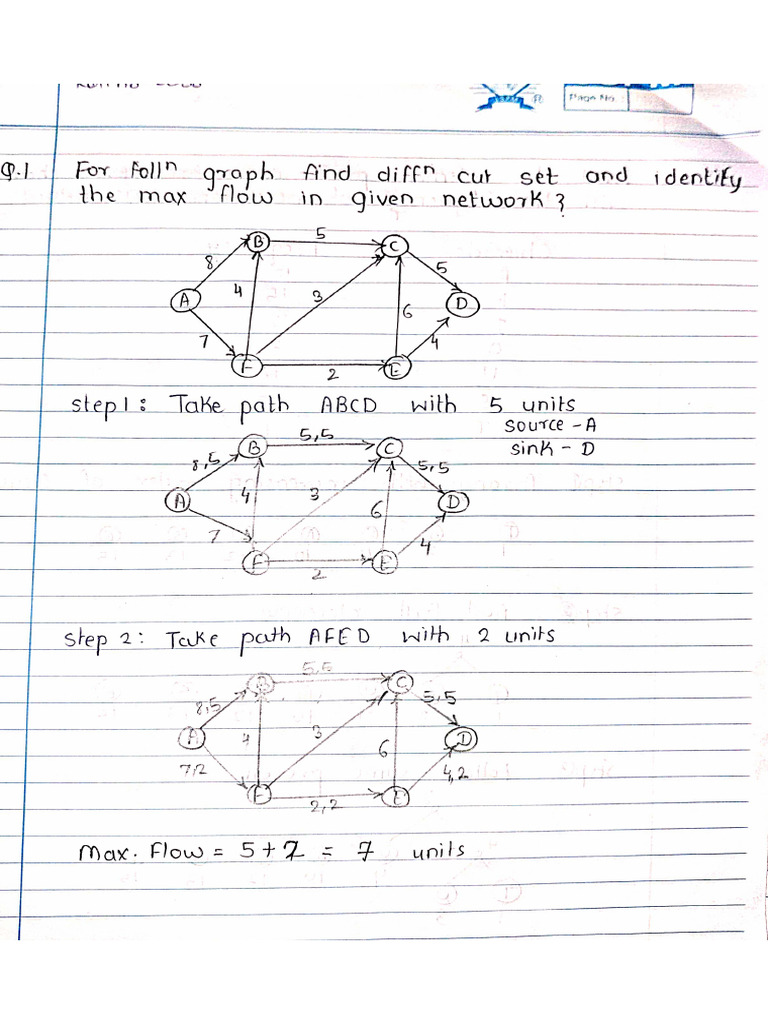 Page No.
Q.1 For foll^n graph find diff^n cut set and identify
the max flow in given network?
B 5 C
8 4 3 5
A 6 D
7 4
F 2 E
step1: Take path ABCD with 5 units
source - A
sink - D
B 5,5 C
8,5 4 3 5,5
A 6 D
7 4
F 2 E
step 2: Take path AFED with 2 units
5,5
B C
8,5 5,5
A 4 3 6 D
7,2 4,2
F 2,2 E
Max. Flow = 5+2 = 7 units